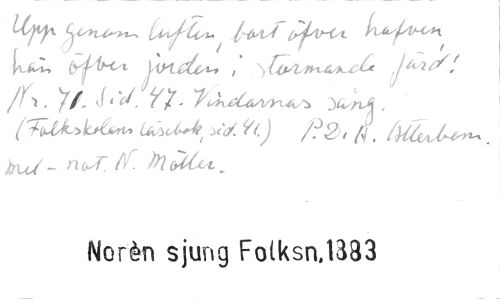 Upp genom luften, bort öfver hafven
hän öfver jorden i stormande färd!
Nr. 71. Sid. 47. Vindarnas sång.
(Folkskolans läsebok, sid. 41.) P. D. A. Atterbom.
mel - not. N. Möller.
Norèn sjung Folksn, 1883